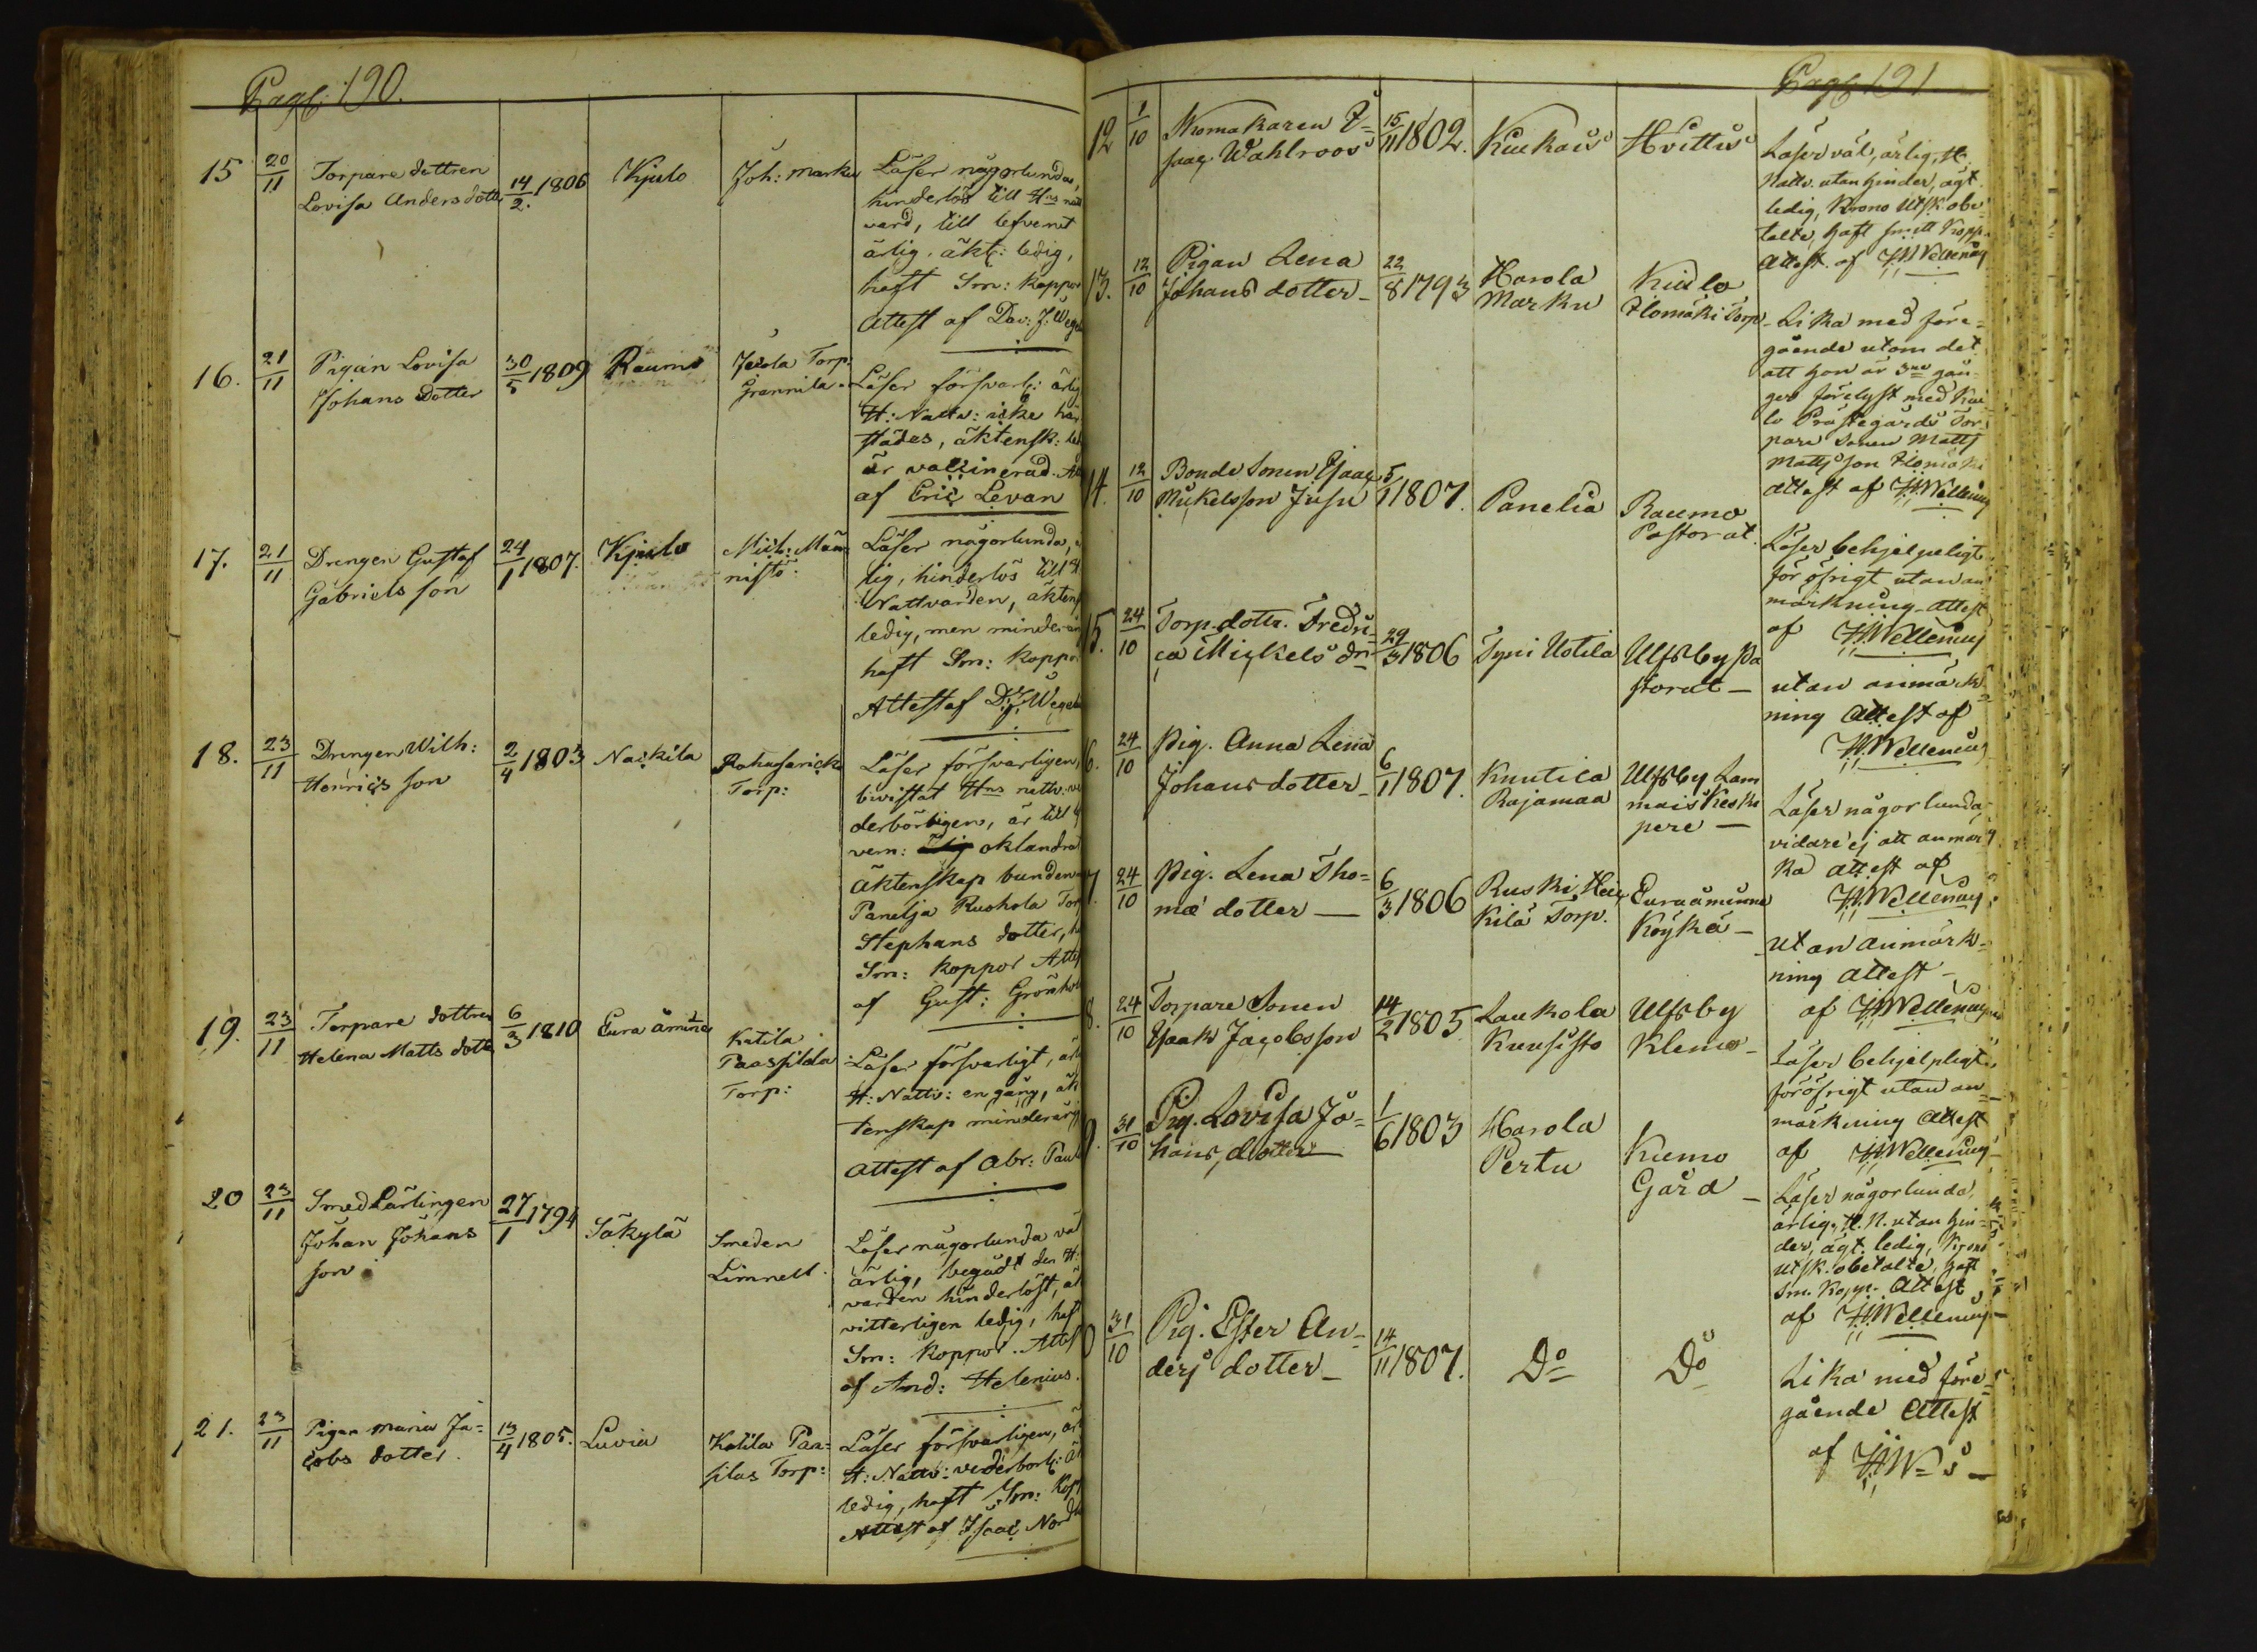 Pag: 190.
15 20/11 Torpare dottren Lovisa Anders dotter 14/2. 1806 Kjulo Joh: Marku
Läser någorlunda,
hinderlös till Hns natt
vard, till lefvernet
ärlig, äkt: ledig,
haft Sm: koppor
Attest af Dav: J. Wegel
16. 21/11 Pigan Lovisa Johans Dotter 30/5 1809 Raumo Torp: Grannila
Läser försvarl: ärlig
H: Nattv: icke här
städes, äktensk: led
är vaccinerad. Att
af Eric Levan
17. 21/11 Drengen Gustaf Gabriels son 24/1 1807. Kjulo Mich: Män nistö.
Läser någorlunda,
lig, hinderlös till H
Nattvarden, äktens
ledig, men minderår
haft Sm: koppor.
Attest af D: J. Wegel
18. 23/11 Drengen Wilh: Henrics son 2/4 1803 Nackila Torp:
Läser försvarligen,
bivistat Hns nattv. ve
derbörligen, är till
vern: oklandra
äktenskap bunden
Panelja Ruohola Torp
Stephans dotter, h
Sm: koppor Attes
af Gust: Grönhol
19. 23/11 Torpare dottren Helena Matts dotter 6/3 1810 Eura åminne Katila Paassilda Torp:
Läser försvarligt, ärl
H: Nattv: en gång, äk
tenskap minderårig
Attest af Abr: Paul
20 23/11 Smed Lärlingen Johan Johans son 27/1 1794 Säkylä Smeden Limnell.
Läser någorlunda väl
ärlig, begådt den H.
varden hinderlöst, äk
vitterligen ledig, haf
Sm: koppor. Attes
af And: Helenius.
21. 23/11 Pigan Maria Ja= cobs dotter. 13/4 1805. Luvia Katila Paa= silas Torp:
Läser försvarligen, är
H: Nattv: vederborl: äk
ledig, haft Sm: Kop
Attest af Isaac Nord
Pag: 191
12 1/10 Skomakaren I= saac Wahlroos 15/11 1802. Kiukais Hvittis
Läser väl, ärlig, H.
Nattv. utan hinder, ägt.
ledig, Krono Utsk. obe=
talte, haft smitt Kopp.
Attest. af HWellenius
13. 12/10 Pigan Lena Johans dotter - 22/8 1793 Harola Marku Kiulo Ilomäki Torp
Lika med före=
gående utom det
att hon är 3ne gån=
ger förelyst med Kiu
lo Prästegårds Tor=
pare Sonen Matts
Mattsson Ilomäki
attest af HWellenius
14. 12/10 Bonde Sonen Isaac Mickelsson Jusu 5/1 1807. Panelia Raumo Pastorat.
Läser behjelpeligt
för öfrigt utan an
märkning - attest
af HWellenius
15. 24/10 Torp. dottr. Fredri= ca Mickels dr 29/3 1806 Tyni Uotila Ulfsby Pa storat -
utan anmärk=
ning Attest af
HWellenius
6. 24/10 Pig. Anna Lena Johans dotter - 6/1 1807. Knutila Rajamaa Ulfsby Lam mais Keski pere -
Läser någorlunda,
vidare ej att anmär
ka attest af
HWellenius
7. 24/10 Pig. Lena Tho= mæ dotter - 6/3 1806 Ruski Hei kilä Torp. Euraåminne Köykä -
Utan anmärk=
ning attest -
af HWellenius
8. 24/10 Torpare Sonen Isaak Jacobsson 14/2 1805. Laukola Kuusisto Ulfsby Klemo -
Läser behjelpligt,
föröfrigt utan an=
märkning Attest
af HWellenius
9. 31/10 Pig. Lovisa Jo= hans dotter 1/6 1803 Harola Pertu Kiemo Gård -
Läser någorlunda,
ärlig, H. N. utan hin=
der, ägt. ledig, Krono
utsk. obetalte, haft
Sm. Kopp. Attest
af HWellenius -
0 31/10 Pig. Ester An= ders dotter - 14/11 1807. Do Do
Lika med före=
gående Attest
af HW=s -